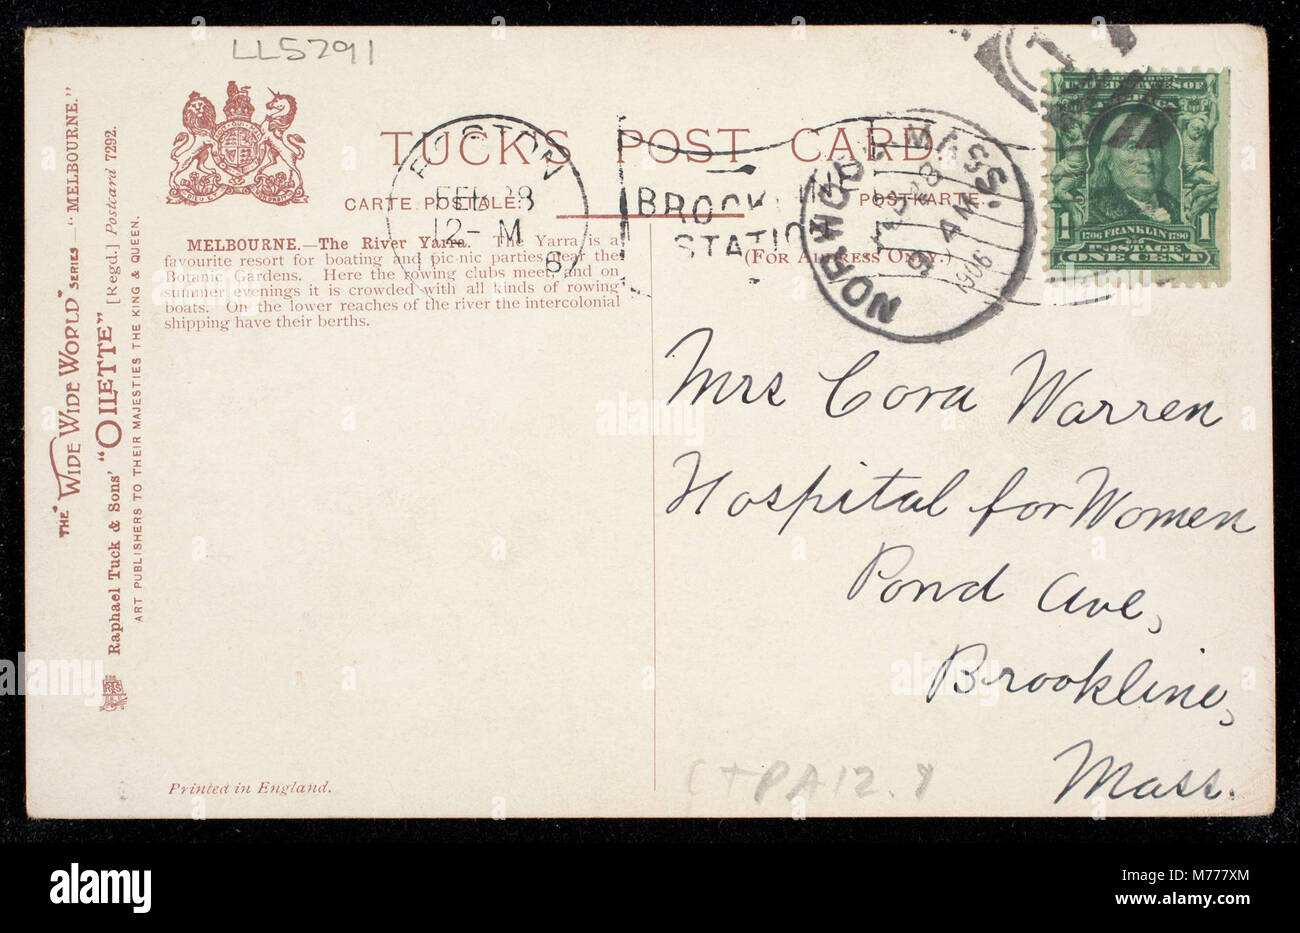 LL5291
TUCK'S POST CARD
CARTE POSTALE.
POSTKARTE.
(FOR ADDRESS ONLY.)
BOSTON
FEB 28
12- M
BROOKLINE
STATION
NORWOOD MASS.
28
4 AM
1906
1
UNITED STATES OF
AMERICA
1 1
1706 FRANKLIN 1790
POSTAGE
ONE CENT
MELBOURNE.—The River Yarra. The Yarra is a
favourite resort for boating and pic-nic parties near the
Botanic Gardens. Here the rowing clubs meet, and on
summer evenings it is crowded with all kinds of rowing
boats. On the lower reaches of the river the intercolonial
shipping have their berths.
THE "WIDE WIDE WORLD" SERIES—"MELBOURNE."
Raphael Tuck & Sons' "OILETTE" [Regd.] Postcard 7292.
ART PUBLISHERS TO THEIR MAJESTIES THE KING & QUEEN.
Mrs Cora Warren
Hospital for Women
Pond Ave,
Brookline,
Mass.
Printed in England.
alamy
Image ID: M777XM
www.alamy.com